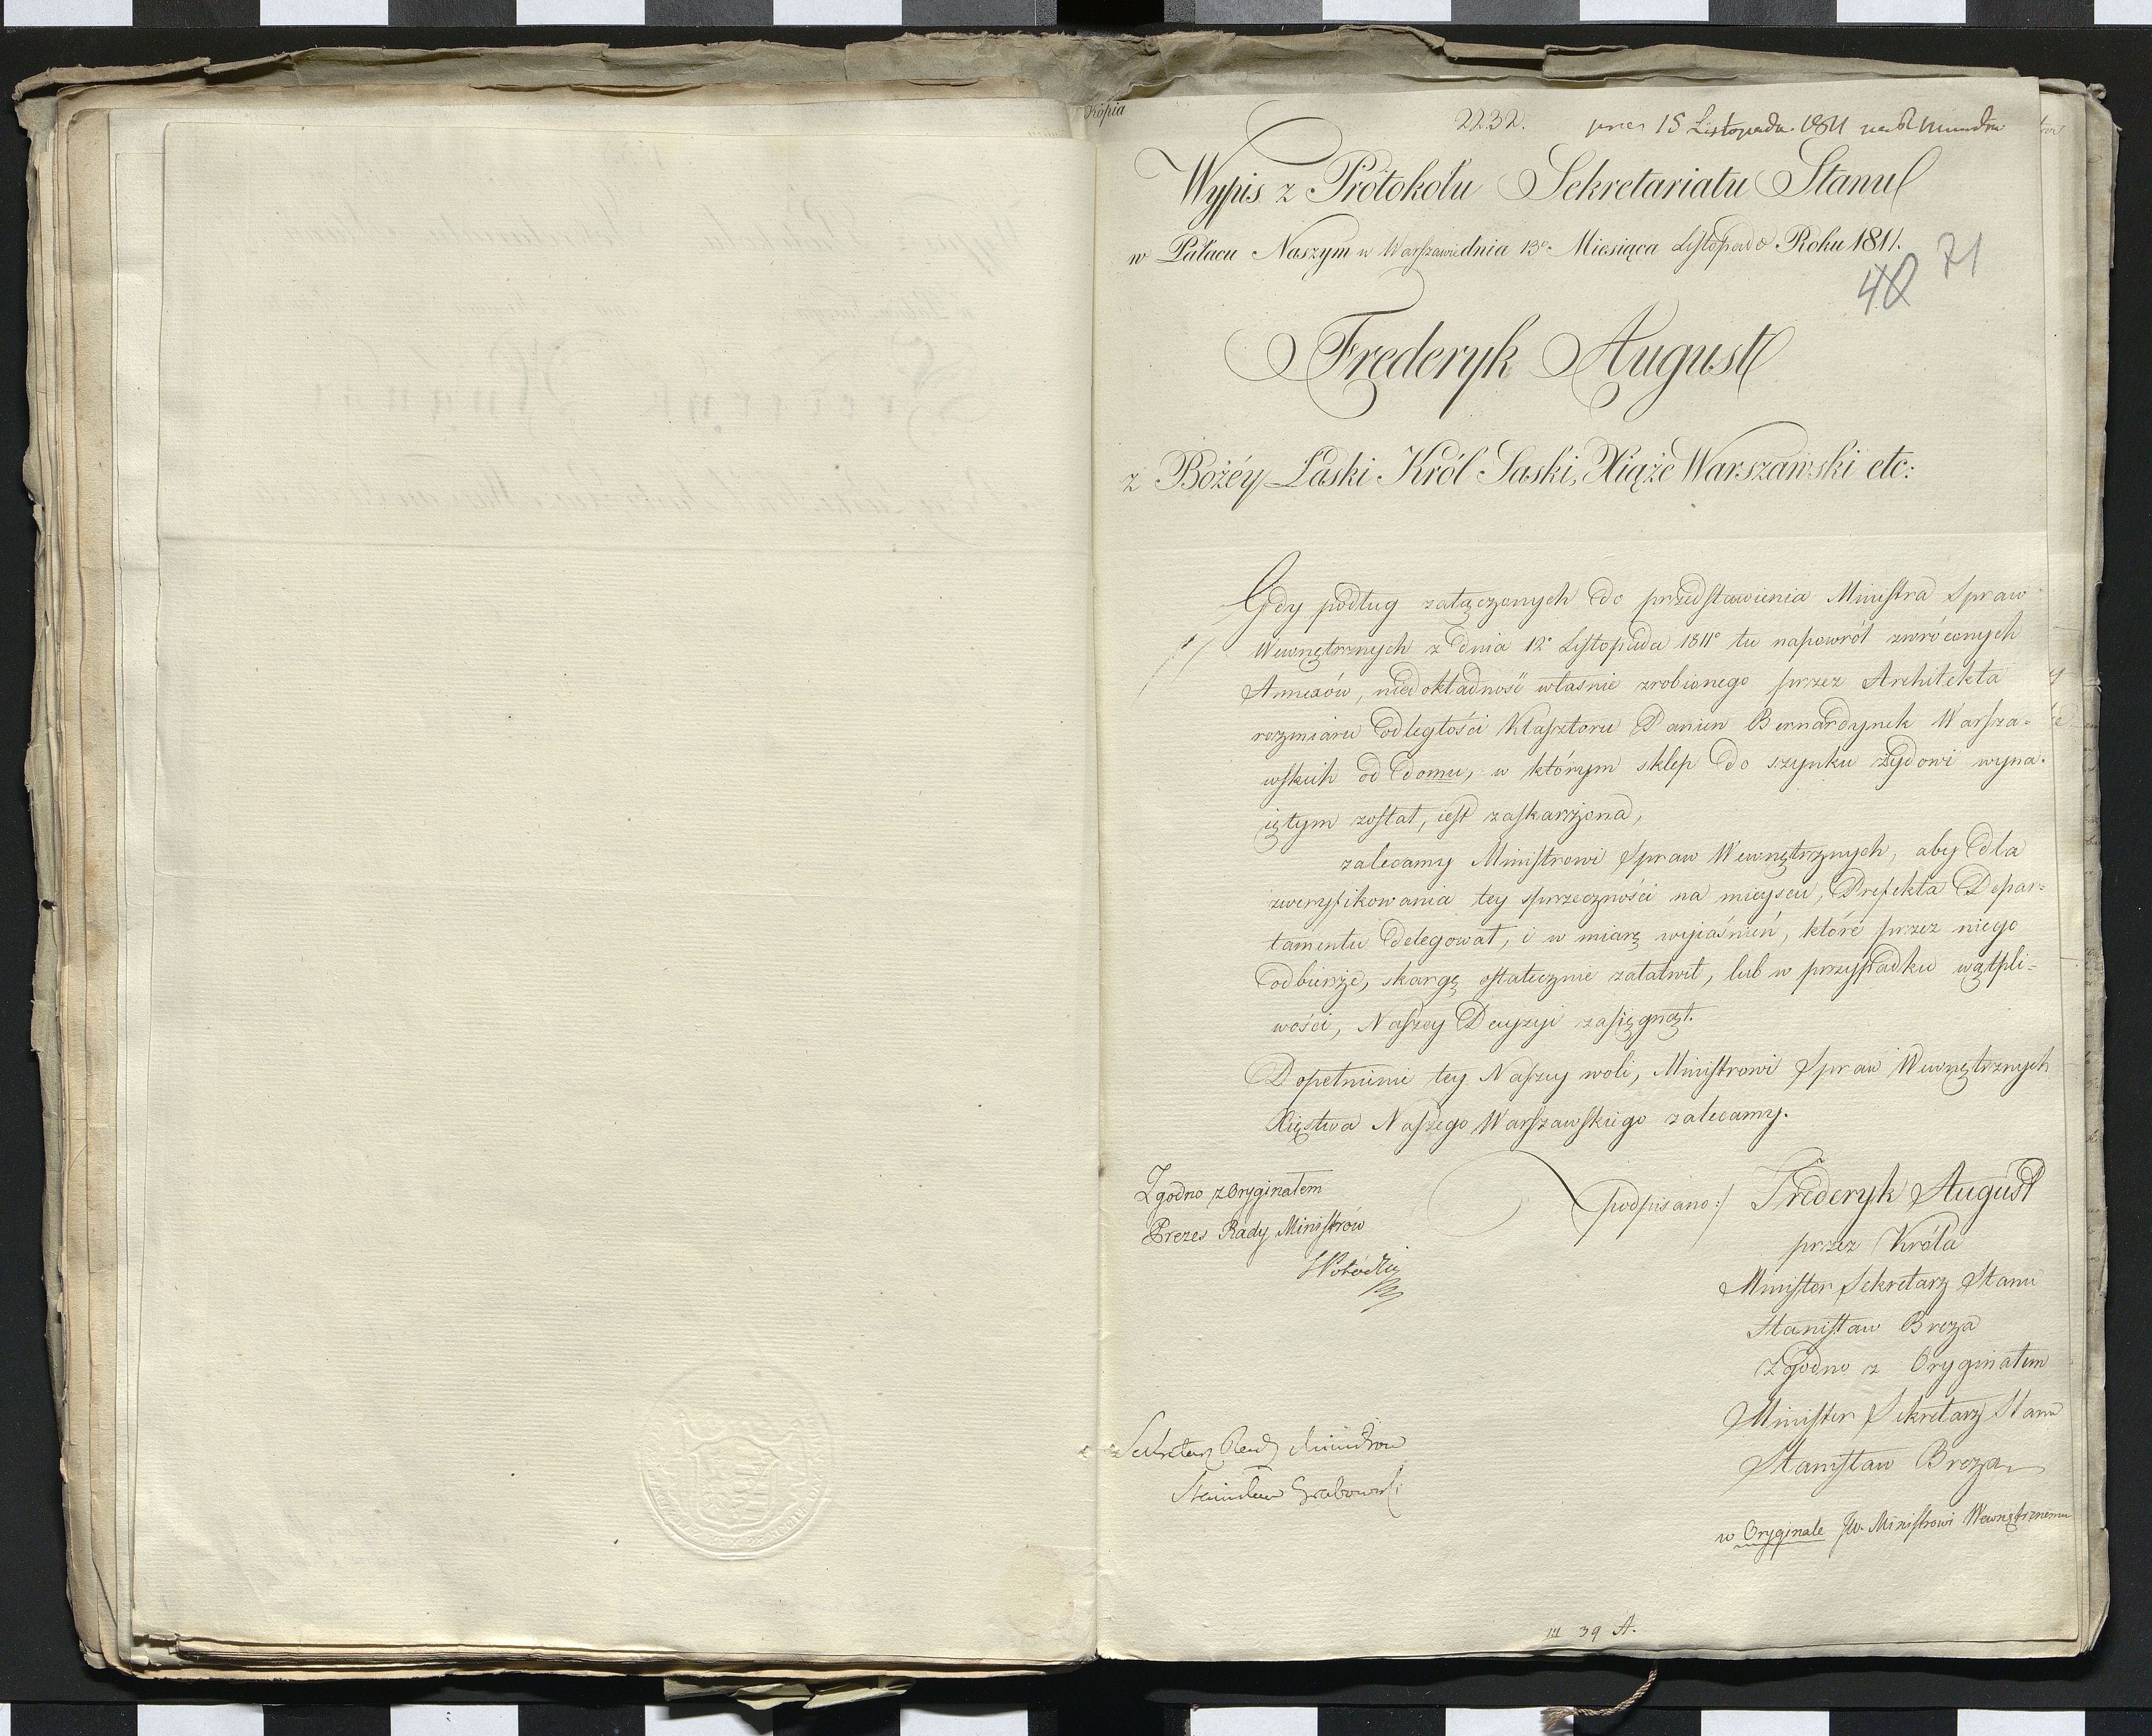 Kopia
2232. 15 Listopada 1811
Wypis z Protokołu Sekretariatu Stanu
w Pałacu Naszym w Warszawie dnia 13º Miesiąca Listopada Roku 1811.
40 71
Frederyk August
z Bożéy Łaski Król Saski, Xiąże Warszawski etc:
Gdy podług załączonych do przedstawienia Ministra Spraw
Wewnętrznych z dnia 12º Listopada 1811º tu napowrót zwróconych
Annexów, niedokładność właśnie zrobionego przez Architekta
rozmiaru odległości Klasztoru Panien Bernardynek Warsza-
wskich od domu, w którym sklep do szynku żydowi wyna-
iętym został, iest zaskarżona,
zalecamy Ministrowi Spraw Wewnętrznych, aby dla
zweryfikowania tey sprzeczności na mieyscu, Prefekta Depar-
tamentu delegował, i w miarę wyiaśnień, które przez niego
odbierze, skargę ostatecznie załatwił, lub w przypadku wątpli-
wości, Naszey Decyzyi zasięgnął.
Dopełnienie tey Naszey woli, Ministrowi Spraw Wewnętrznych
Xięstwa Naszego Warszawskiego zalecamy.
Zgodno z Oryginałem
Prezes Rady Ministrów
podpisano:/ Frederyk August
przez Króla
Minister Sekretarz Stanu
Stanisław Breza
Zgodno z Oryginałem
Minister Sekretarz Stanu
Stanisław Breza
Sekretarz Rady Ministrow
Stanisław Grabowski
w Oryginale JW. Ministrowi Wewnętrznemu
III 39 A.